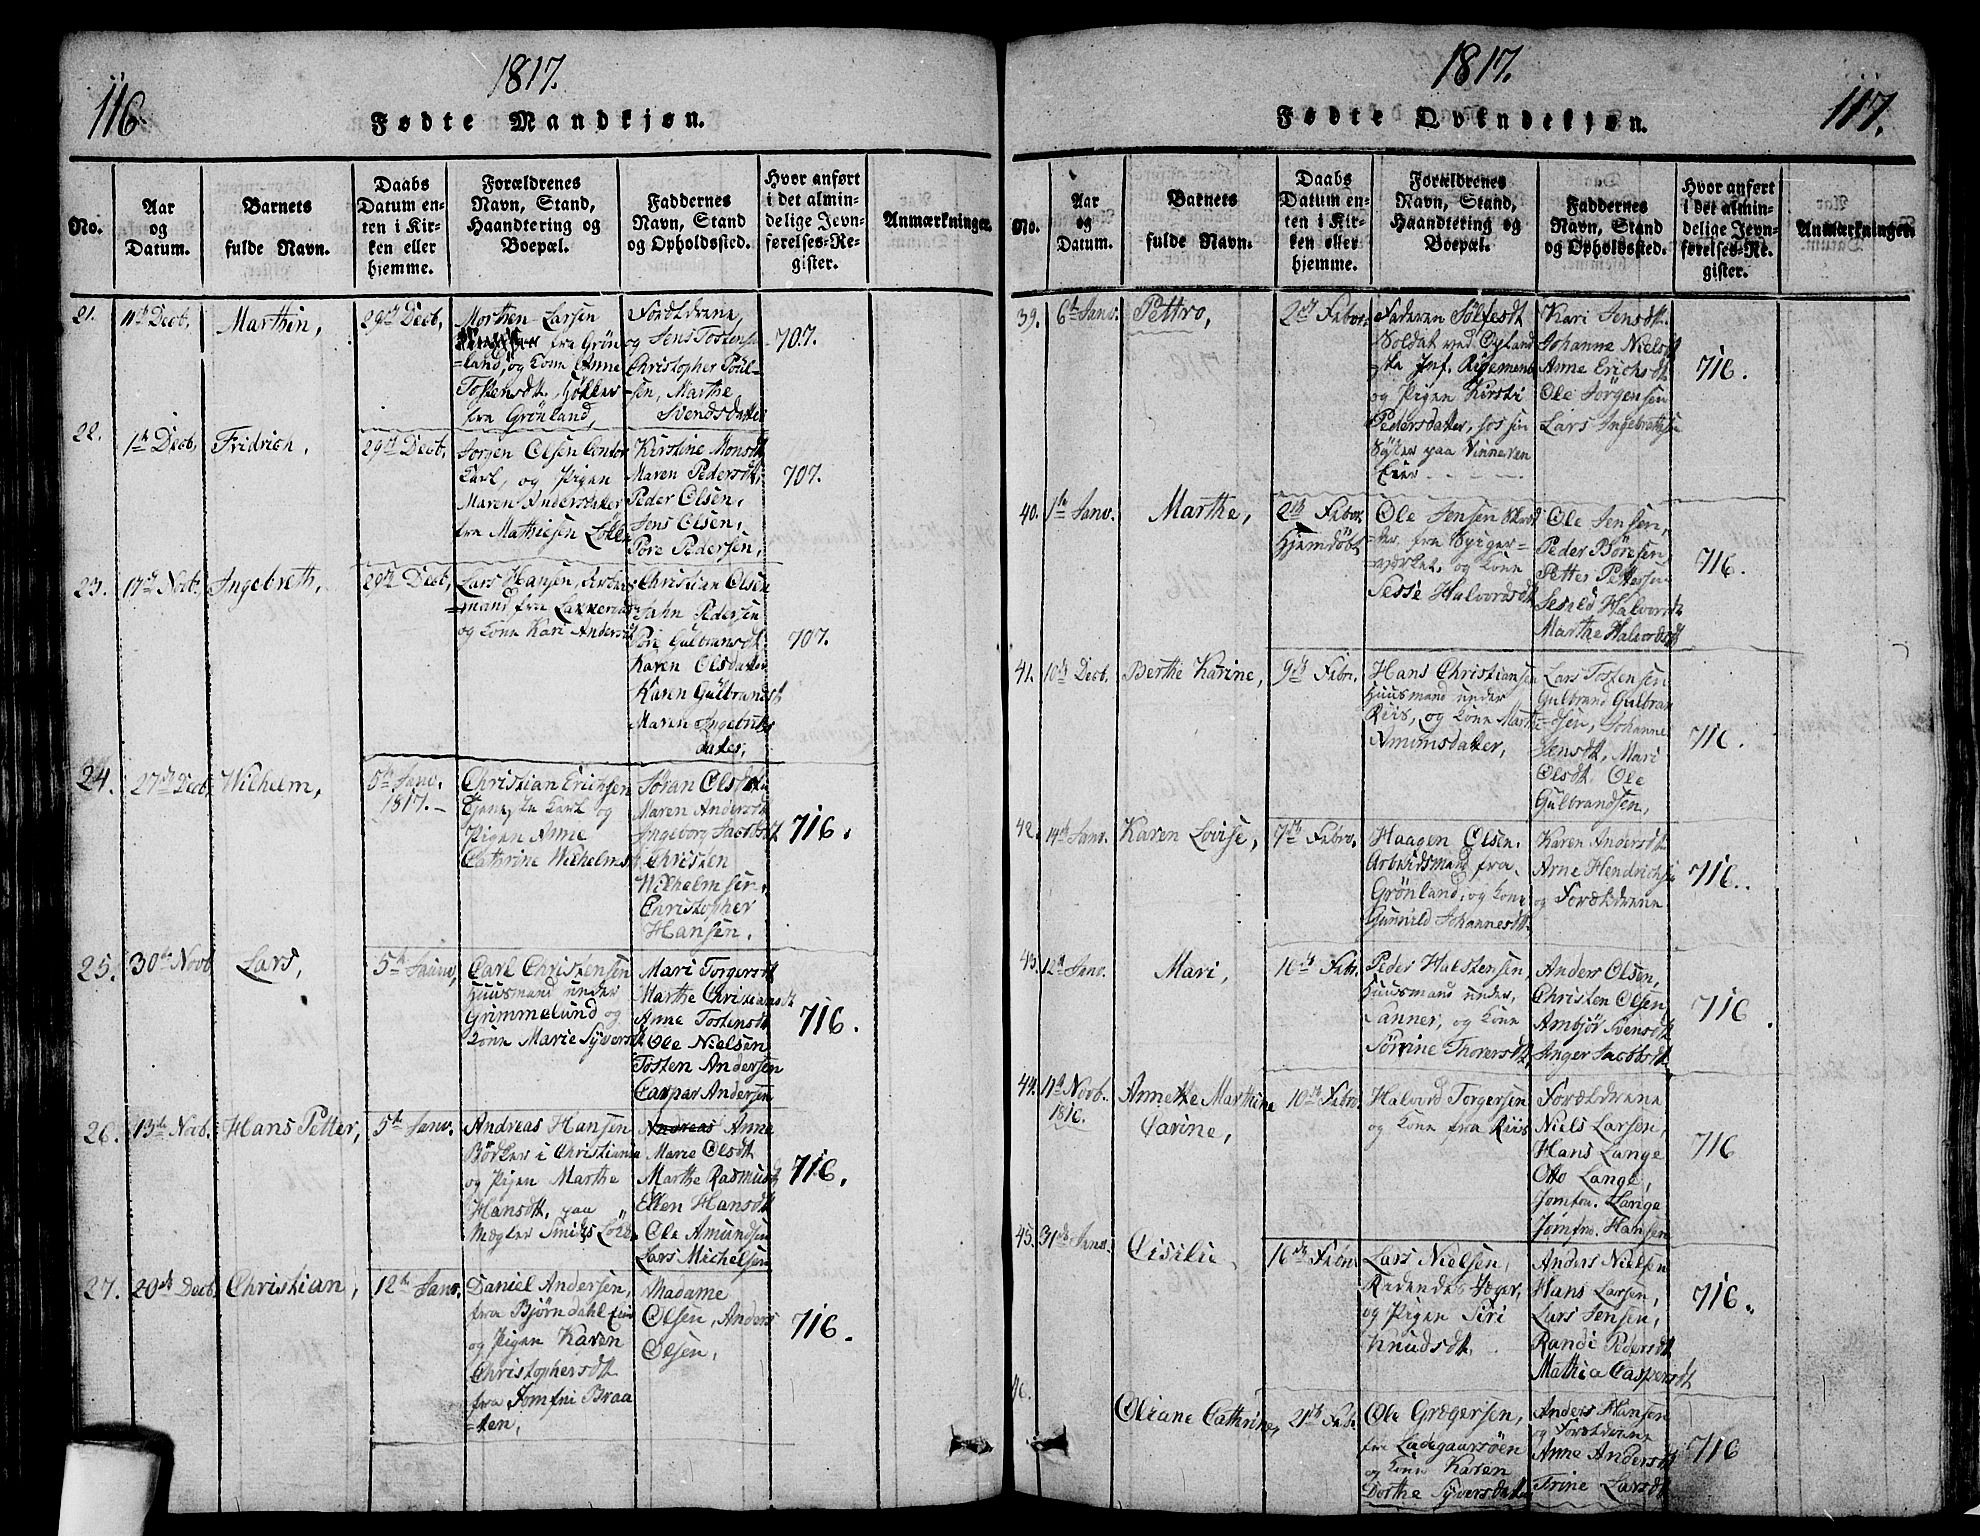 116.
1817.
Fødte Mandkjøn.
No.
Aar
og
Datum.
Barnets
fulde Navn.
Daabs
Datum en-
ten i Kir-
ken eller
hjemme.
Forældrenes
Navn, Stand,
Haandtering og
Boepæl.
Faddernes
Navn, Stand
og Opholdssted.
Hvor anført
i det almin-
delige Jevn-
førelses-Re-
gister.
Anmærkninger.
21.
11te Decb,
Marthin,
29de Decb,
Morthen Larsen
fra Grön
land, og Kone Anne
Tostensdt. Hökker
fra Grönland,
Forældrene,
og Jens Tostensen
Christopher Poul-
sen, Marthe
Svendsdatter
707.
22.
1te Decb,
Fridrich,
29de Decb,
Jörgen Olsen Contor
Karl, og Pigen
Maren Andersdatter
fra Mathiesen Lökke
Kirstine Monsdt
Maren Pedersdt,
Peder Olsen,
Jens Olsen,
Pore Pedersen,
707.
23.
17de Novb.
Ingebreth,
29de Decb,
Lars Hansen, Arbeids
mand fra
og Kone Kari Andersdt
Christian Olsen
Jahn Pedersen
Pore Gulbransdt
Karen Olsdatter
Karen Gulbrandsdt
Maren Ingebrets
datter,
707.
24.
27de Decb,
Wilhelm,
5te Janv.
1817.
Christian Erichsen
Tjeneste Karl og
Pigen Anne
Cathrine Wilhelmsdt
Jöran Olsdt
Maren Andersdt
Ingeborg Jacobsdt
Christen
Wilhelmsen.
Christopher
Hansen.
716.
25.
30te Novb
Lars,
5te Janv,
Carl Christensen
Huusmand under
Grimmelund og
Kone Marie Syversdt
Mari Torgersdt
Marthe Christiansdt
Anne Tostensdt
Ole Nielsen
Tosten Andersen
Caspar Andersen
716.
26.
13te Novb.
Hans Petter,
5te Janv.
Andreas Hansen
Bödker i Christiania
og Pigen Marthe
Hansdt, paa
Mægler Smids Lökke
Andreas Anne
Marie Olsdt
Marthe Rasmusdt
Ellen Hansdt
Ole Amundsen
Lars Michelsen
716.
27.
20de Decb,
Christian,
12te Janv.
Daniel Andersen,
fra Bjørndahl Eier
og Pigen Karen
Christophersdt
fra Jomfru Braa
ten,
Madame
Olsen, Anders
Olsen,
716.
1817.
117.
Fødte Qvindekjøn.
No.
Aar
og
Datum.
Barnets
fulde Navn.
Daabs
Datum en-
ten i Kir-
ken eller
hjemme.
Forældrenes
Navn, Stand,
Haandtering og
Boepæl.
Faddernes
Navn, Stand
og Opholdssted.
Hvor anført
i det almin-
delige Jevn-
førelses-Re-
gister.
Anmærkninger.
39.
6te Janv.
Pettro,
2den Febr.
Faderen
Soldat ved Opland
ske Inf. Regement
og Pigen Kirsti
Pedersdatter, hos sin
Söster paa Vinneren
Eier
Kari Jensdt.
Johanne Nielsdt
Anne Erichsdt
Ole Jörgensen
Lars Ingebrethsen
716.
40.
1te Janv.
Marthe,
2de Febr.
Hjemdöbt
Ole Jensen
fra Spiger-
værket, og Kone
Sesse Halvordsdt
Ole Jensen,
Peder Böresen
Petter Pettersen
Seshild Halvorsdt
Marthe Halvordsdt
716.
41.
10de Decb.
Berthe Karine,
9de Febr.
Hans Christiansen
Huusmand under
Riis, og Kone Marthe
Amunsdatter,
Lars Tostensen
Gulbrand Gulbran
dsen, Johanne
Jensdt, Mari
Olsdt Ole
Gulbrandsen,
716.
42.
14de Janv.
Karen Lovise,
7de Febr.
Haagen Olsen.
Arbeidsmand fra
Grönland, og Kone
Gunnild Johannesdt.
Karen Andersdt
Arne Hendrichsen
og Forældrene
716.
43.
12te Janv.
Mari,
10de Febr.
Peder Halstensen,
Huusmand under,
Sanner, og Kone
Sörine Thorersdt
Anders Olsen,
Christen Olsen
Ambjör Svensdt
Anger Jacobsdt
716.
44.
11te Novb.
1816.
Annette Marthine
Carine,
10de Febr.
Halvord Torgersen
og Kone fra Riis
Forældrene
Niels Larsen,
Hans Lange
Otto Lange,
Jomfru. Lange
Jomfru. Hansen
716
45.
31de Janv.
Cisilie
16de Febr.
Lars Nielsen,
og Pigen Siri
Knudsdt.
Anders Nielsen
Hans Larsen,
Lars Jensen,
Randi Pedersdt
Mathia Caspersdt
716.
46.
Oliane Cathrine,
21de Febr.
Ole Gregersen,
fra Ladegaarsöen
og Kone Karen
Dorthe Syversdatter
Anders Hansen
og Forældrene
Anne Andersdt
Trine Larsdt
716